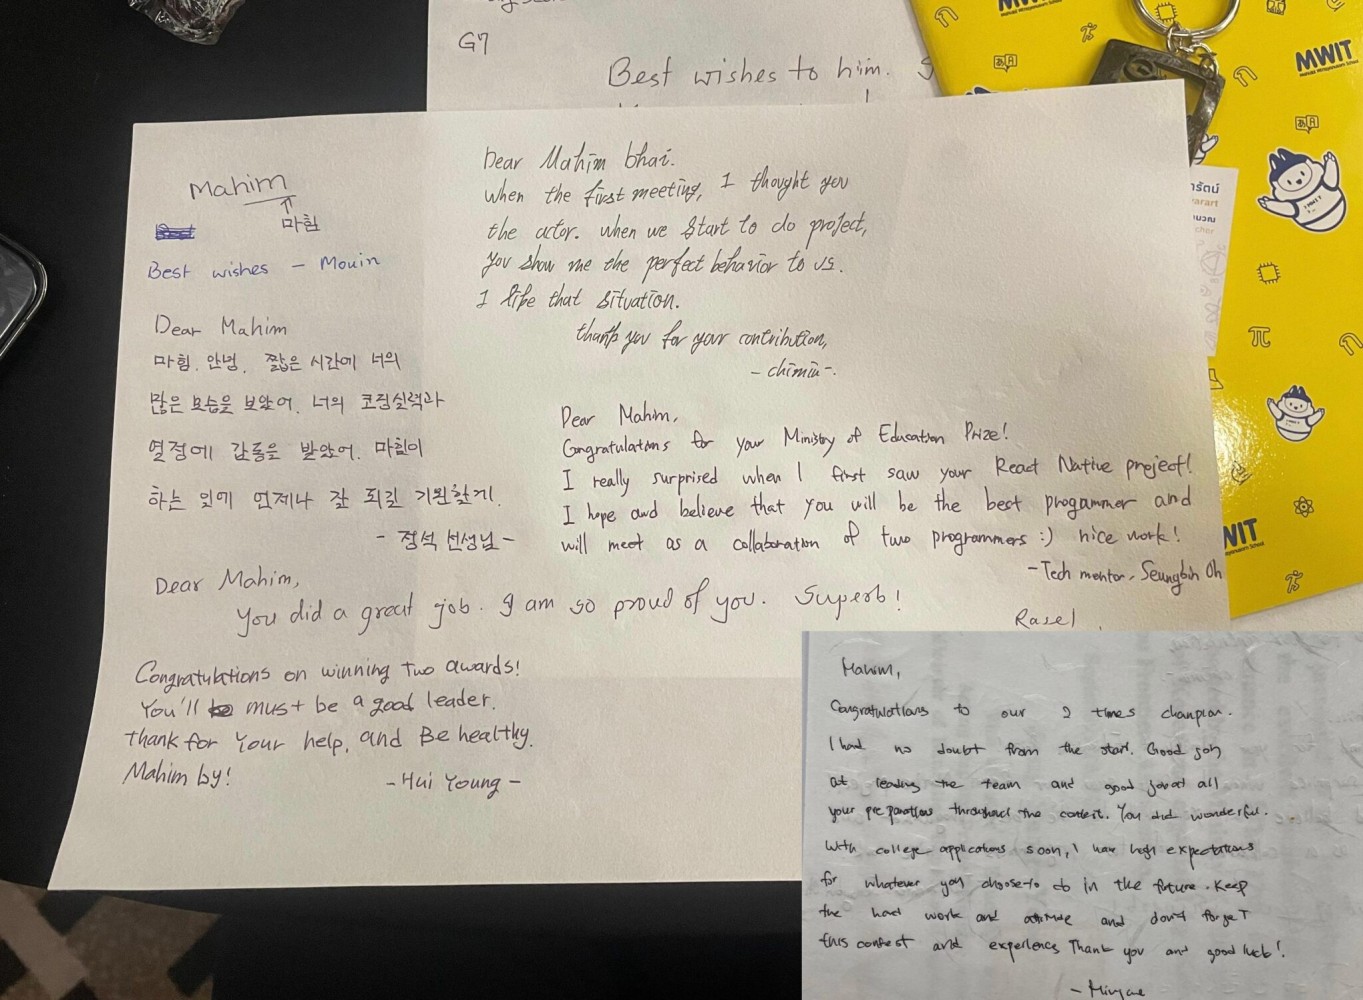 G7
Best wishes to him. S
Mahim
마힘
Best wishes - Mouin
Dear Mahim
마힘. 안녕. 짧은 시간에 너의
많은 모습을 보았어. 너의 코딩실력과
열정에 감동을 받았어. 마힘이
하는 일에 언제나 잘 되길 기원할게.
- 정석 선생님 -
Dear Mahim bhai.
When the first meeting, I thought you
the actor. When we start to do project,
you show me the perfect behavior to us.
I like that situation.
thank you for your contribution,
- chimin -.
Dear Mahim,
Congratulations for your Ministry of Education Prize!
I really surprised when I first saw your React Native project!
I hope and believe that you will be the best progammer and
will meet as a collaboration of two programmers :) nice work!
- Tech mentor. Seungbin Oh
Dear Mahim,
You did a great job. I am so proud of you. Superb!
Rasel
Congratulations on winning two awards!
You'll must be a good leader.
thank for Your help, and Be healthy.
Mahim by!
- Hui Young -
Mahim,
Congratulations to our 2 times champion.
I had no doubt from the start. Good job
at leading the team and good job at all
your preparations throughout the contest. You did wonderful.
With college applications soon, I have high expectations
for whatever you choose to do in the future. Keep
the hard work and attitude and don't forget
this contest and experience Thank you and good luck!
MWIT
MWIT